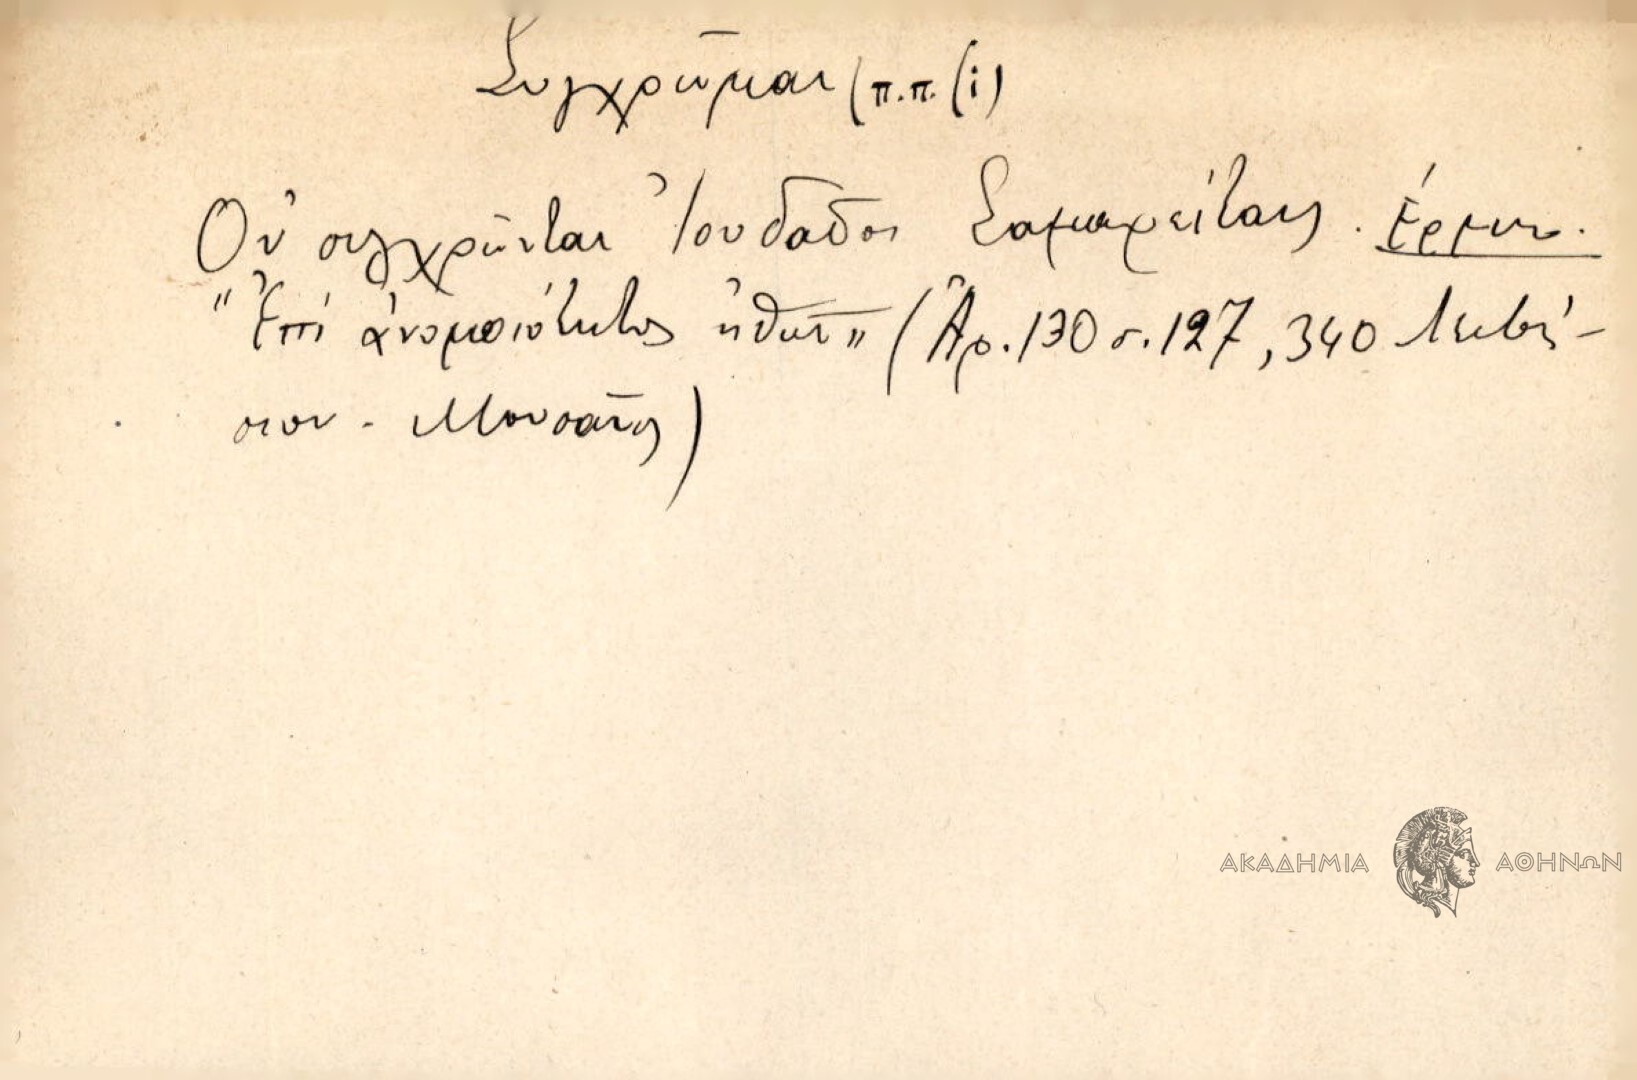 Συγχρῶμαι (π.π. (i)
Οὐ συγχρῶνται Ἰουδαῖοι Σαμαρείταις. Ἑρμην.
"Ἐπὶ ἀνομοιότητος ἠθῶν" (Ἀρ. 130 σ. 127, 340 Λεσβί-
σιον - Μουσαῖος)
ΑΚΑΔΗΜΙΑ ΑΘΗΝΩΝ